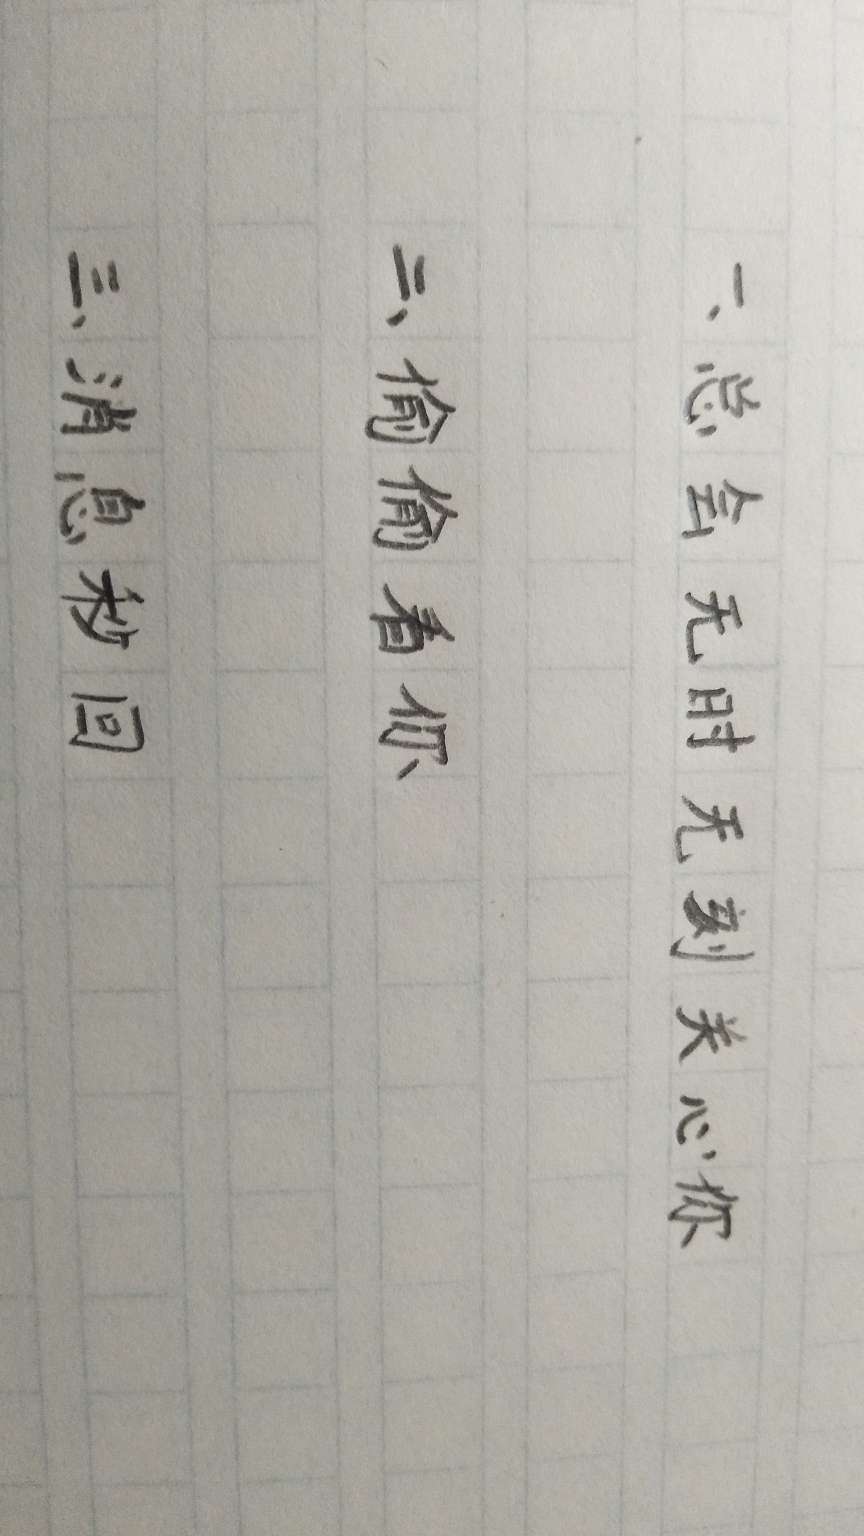 一、总会无时无刻关心你
二、偷偷看你
三、消息秒回